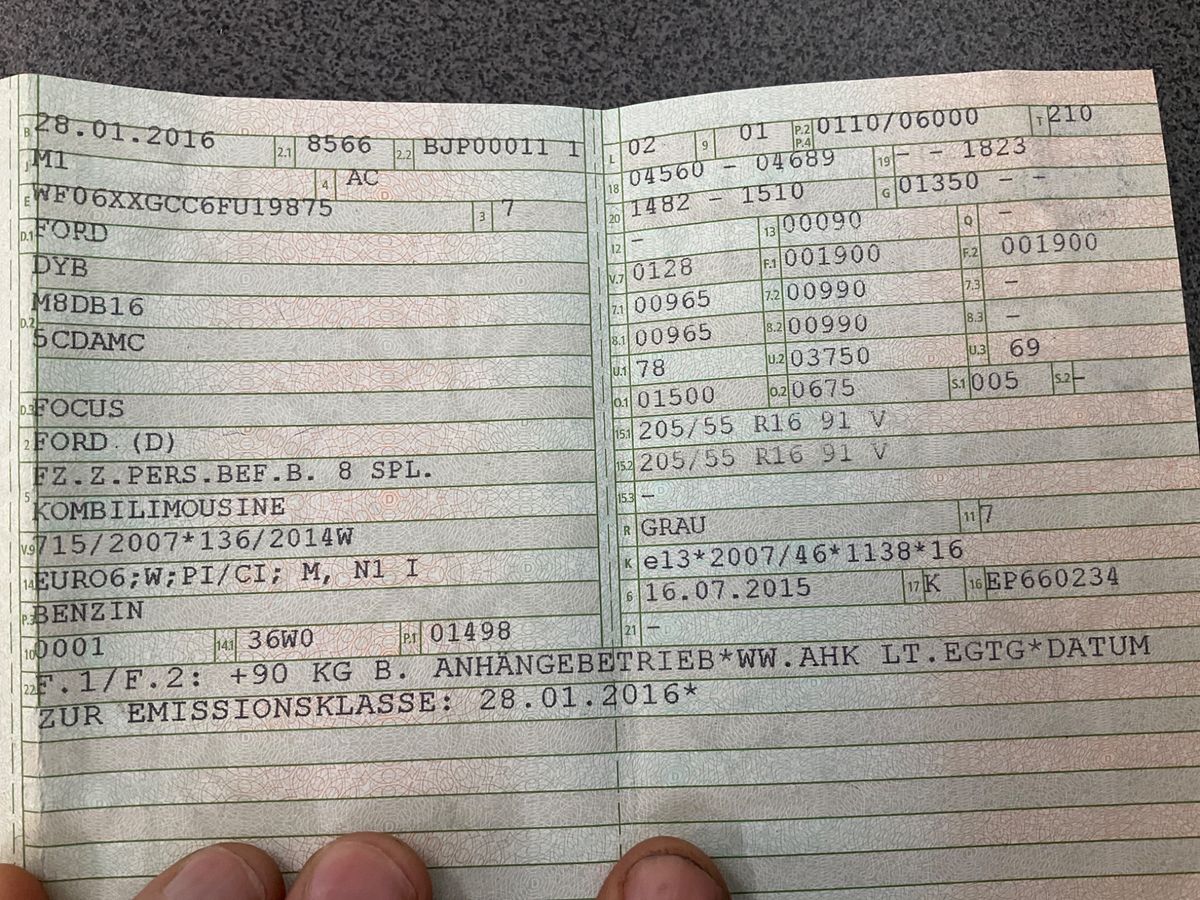 B 28.01.2016 2.1 8566 2.2 BJP00011 1
J M1 4 AC
E WF06XXGCC6FU19875 3 7
D.1 FORD
DYB
D.2 M8DB16
5CDAMC
D.3 FOCUS
2 FORD (D)
FZ.Z.PERS.BEF.B. 8 SPL.
5 KOMBILIMOUSINE
V.9 715/2007*136/2014W
14 EURO6;W;PI/CI; M, N1 I
P.3 BENZIN
10 0001 14.1 36W0 P.1 01498
L 02 9 01 P.2 P.4 0110/06000 T 210
18 04560 - 04689 19 - - 1823
20 1482 - 1510 G 01350 - -
12 - 13 00090 Q -
V.7 0128 F.1 001900 F.2 001900
7.1 00965 7.2 00990 7.3 -
8.1 00965 8.2 00990 8.3 -
U.1 78 U.2 03750 U.3 69
O.1 01500 O.2 0675 S.1 005 S.2 -
15.1 205/55 R16 91 V
15.2 205/55 R16 91 V
15.3 -
R GRAU 11 7
K e13*2007/46*1138*16
6 16.07.2015 17 K 16 EP660234
21 -
22 F.1/F.2: +90 KG B. ANHÄNGEBETRIEB*WW.AHK LT.EGTG*DATUM
ZUR EMISSIONSKLASSE: 28.01.2016*